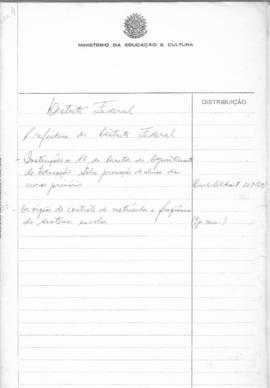 MINISTÉRIO DA EDUCAÇÃO E CULTURA
DISTRIBUIÇÃO
Distrito Federal
Prefeitura do Distrito Federal
- Instruções nº 12 do Diretor do Departamento
de Educação. Sobre promoção de alunos do
curso primário
- Os órgãos de controle de matrícula e frequência
do sistema escolar